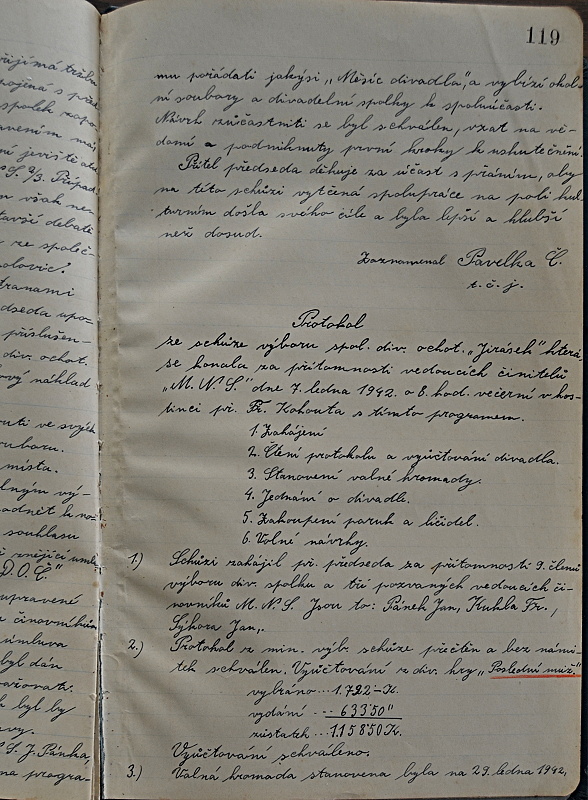 119
mu pořádati jakýsi „Měsíc divadla", a vybízí okol-
ní soubory a divadelní spolky k spoluúčasti.
Návrh zúčastniti se byl schválen, vzat na vě-
domí a podniknuty první kroky k uskutečnění.
Přítel předseda děkuje za účast s přáním, aby
na této schůzi vytčená spolupráce na poli kul-
turním došla svého cíle a byla lepší a hlubší
než dosud.
Zaznamenal Pavelka Č.
t. č. j.
Protokol
ze schůze výboru spol. div. ochot. „Jirásek" která
se konala za přítomnosti vedoucích činitelů
„M. N. S." dne 7. ledna 1942. o 8. hod. večerní v hos-
tinci př. Fr. Kohouta s tímto programem.
1. Zahájení
2. Čtení protokolu a vyúčtování divadla.
3. Stanovení valné hromady.
4. Jednání o divadle.
5. Zakoupení paruk a líčidel.
6. Volné návrhy.
1.) Schůzi zahájil př. předseda za přítomnosti 9. členů
výboru div. spolku a tří pozvaných vedoucích či-
novníků M. N. S. Jsou to: Pánek Jan, Kuhla Fr.,
Sýkora Jan,.
2.) Protokol z min. výb. schůze přečten a bez námi-
tek schválen. Vyúčtování z div. hry „Poslední muž."
vybráno ... 1.792 - K.
vydání ... 633 50 "
zůstatek ... 1.158 50 K.
Vyúčtování schváleno.
3.) Valná hromada stanovena byla na 29. ledna 1942,
řijímá tržbu
spolek zapo-
ní jeviště ale
S. 9/3. Případ
m však ne-
tavší debatě
ze společ-
olovic?
tranami
dseda upo-
příslušen-
div. ochot.
ový náklad
uti ve svých
ouboru.
místa.
lným vý-
odnět k no-
souhlasu
D. O. Č."
upravené
činovníkům
mluva
byl dán
ažovata.
k byl by
vy.
S. J. Pánka,
na progra-